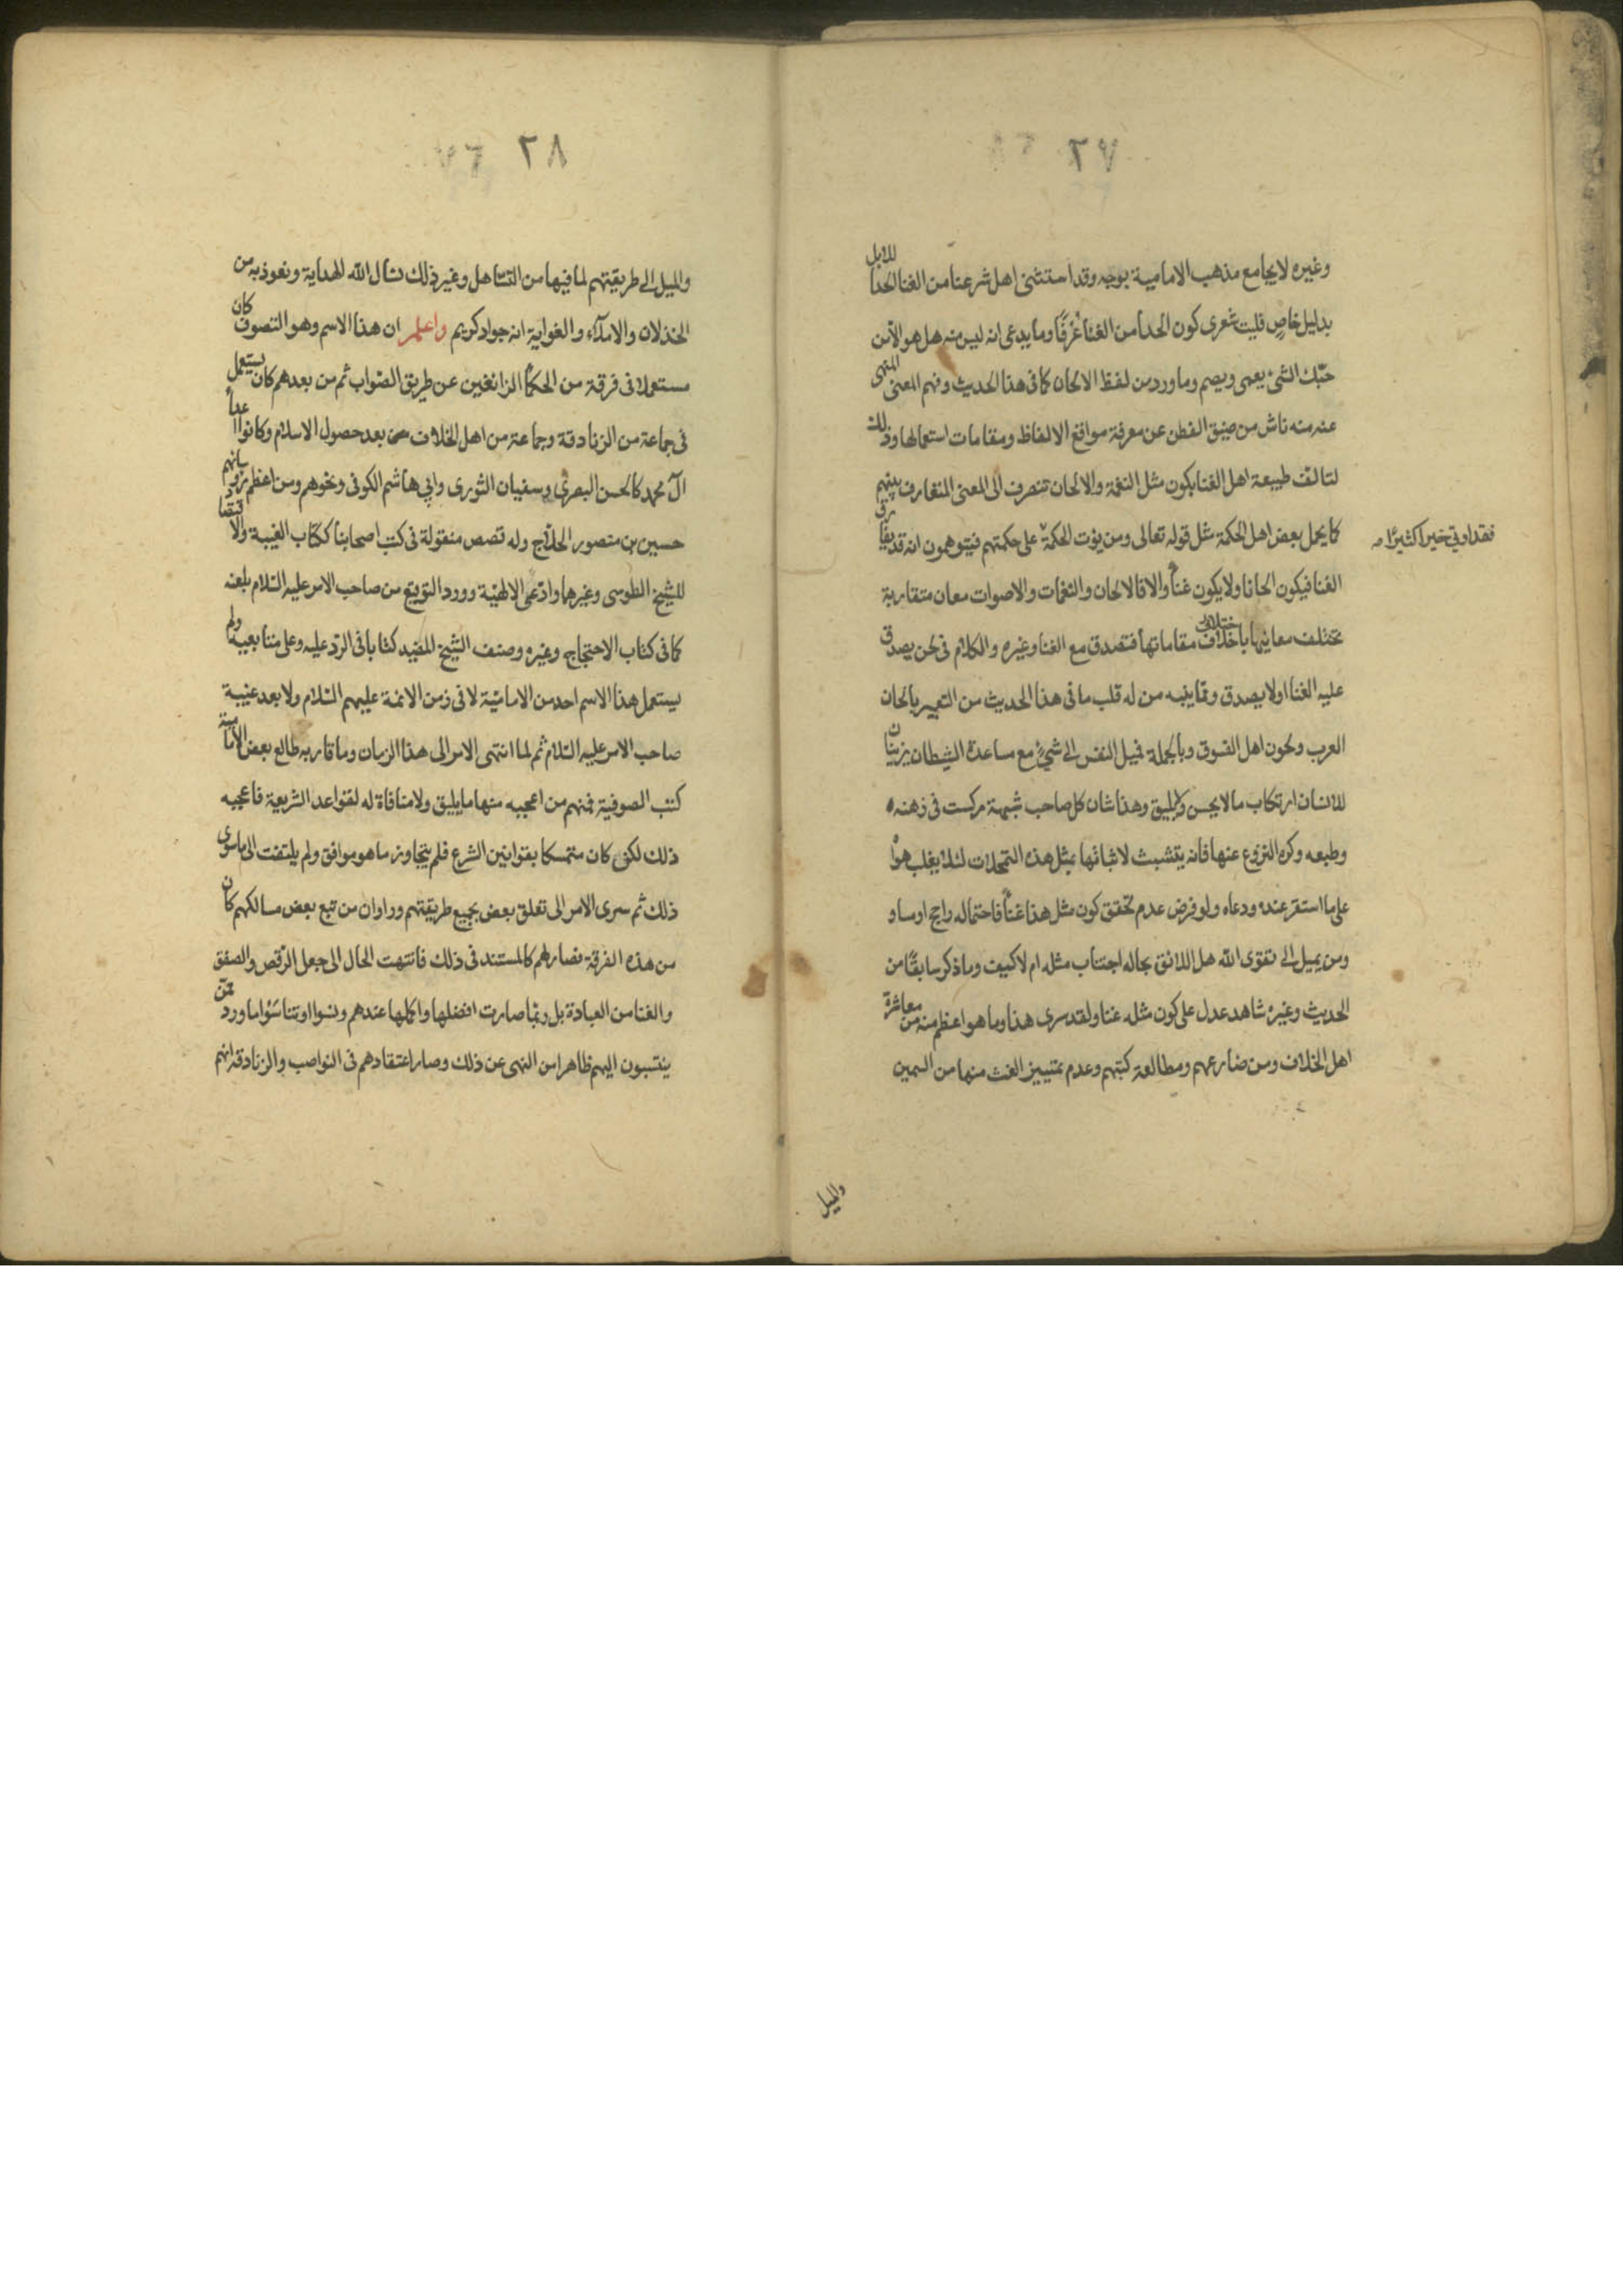 ٢٧
وغيره لا يجامع مذهب الامامية بوجه وقد استثنى اهل شرعنا من الغنا الحدا للابل
بدليل خاص فليت شعرى كون الحدا من الغنا عُرفًا وما يدعى انه ليس منه هل هو الا من
حبّك الشئ يعمى ويصم وما ورد من لفظ الالحان كما فى هذا الحديث وفهم المعنى المنهى
عنه منه ناش من ضيق الفطن عن معرفة مواقع الالفاظ ومقامات استعمالها وذلك
لتالف طبيعة اهل الغنا بكون مثل النغمة والالحان تنصرف الى المعنى المتعارف بينهم
كما يحمل بعض اهل الحكمة مثل قوله تعالى ومن يؤت الحكمة على حكمتهم فيتوهمون انه قد يفارق
فقد اوتي خيرا كثيرًا صه
الغنا فيكون الحانا ولا يكون غناً والا فالالحان والنغمات والاصوات معان متقاربة
تختلف معانيها باختلاف مقاماتها فتصدق مع الغنا وغيره والكلام فى لحن يصدق
عليه الغنا اولا يصدق ومما ينبه من له قلب ما فى هذا الحديث من التعبير بالحان
العرب ولحون اهل الفسوق وبالجملة فميل النفس الى شئ مع مساعدة الشيطان يزينان
للانسان ارتكاب ما لا يحسن ولا يليق وهذا شان كل صاحب شبهة مركست فى ذهنه
وطبعه وكره النزوع عنها فانه يتشبث لاثباتها بمثل هذه التمحلات لئلا يغلب هواه
على ما استقر عنده ودعاه ولو فرض عدم تحقق كون مثل هذا غناً فاحتماله راجح او مساو
ومن يميل الى تقوى الله هل اللائق بحاله اجتناب مثله ام لا كيف وما ذكر سابقًا من
الحديث وغيره شاهد عدل على كون مثله غنا ولقد سرى هذا وما هو اعظم منه من معاشرة
اهل الخلاف ومن ضارعهم ومطالعة كتبهم وعدم تمييز الغث منها من السمين
والميل
٢٨
والميل الى طريقتهم لما فيها من التساهل وغير ذلك نسال الله الهداية ونعوذ به من
الخذلان والاملاء والغواية انه جواد كريم واعلم ان هذا الاسم وهو التصوف كان
مستعملا فى فرقة من الحكماء الزائغين عن طريق الصواب ثم من بعدهم كان يستعمل
فى جماعة من الزنادقة وجماعة من اهل الخلاف من بعد حصول الاسلام وكانوا اعداء
آل محمد كالحسن البصرى وسفيان الثورى وابي هاشم الكوفى ونحوهم ومن اعظم
حسين بن منصور الحلاج وله قصص منقولة فى كتب اصحابنا ككتاب الغيبة والاقتصاد
للشيخ الطوسى وغيرهما وادّعى الالهيّة وورد التوقيع من صاحب الامر عليه السّلام بلعنه
كما فى كتاب الاحتجاج وغيره وصنف الشيخ المفيد كتابا فى الرد عليه وعلى متابعيه ولم
يستعمل هذا الاسم احد من الاماميّة لا فى زمن الائمة عليهم السّلام ولا بعد غيبة
صاحب الامر عليه السّلام ثم لما انتهى الامر الى هذا الزمان وما قاربه طالع بعض الامامية
كتب الصوفية فمنهم من اعجبه منها ما يليق ولا منافاة له لقواعد الشريعة فاعجبه
ذلك لكن كان متمسكا بقوانين الشرع فلم يتجاوز ما هو موافق ولم يلتفت الى ما سوى
ذلك ثم سرى الامر الى تعلق بعض بجميع طريقتهم وراوا ان من تبع بعض مسالكهم كان
من هذه الفرقة فصار لهم كالمستند فى ذلك فانتهت الحال الى جعل الرّقص والصفق
والغنا من العبادة بل ربما صارت افضلها واكملها عندهم ونسوا او تناسَوْا ما ورد عمّن
ينتسبون اليهم ظاهرا من النهى عن ذلك وصار اعتقادهم فى النواصب والزنادقة انهم